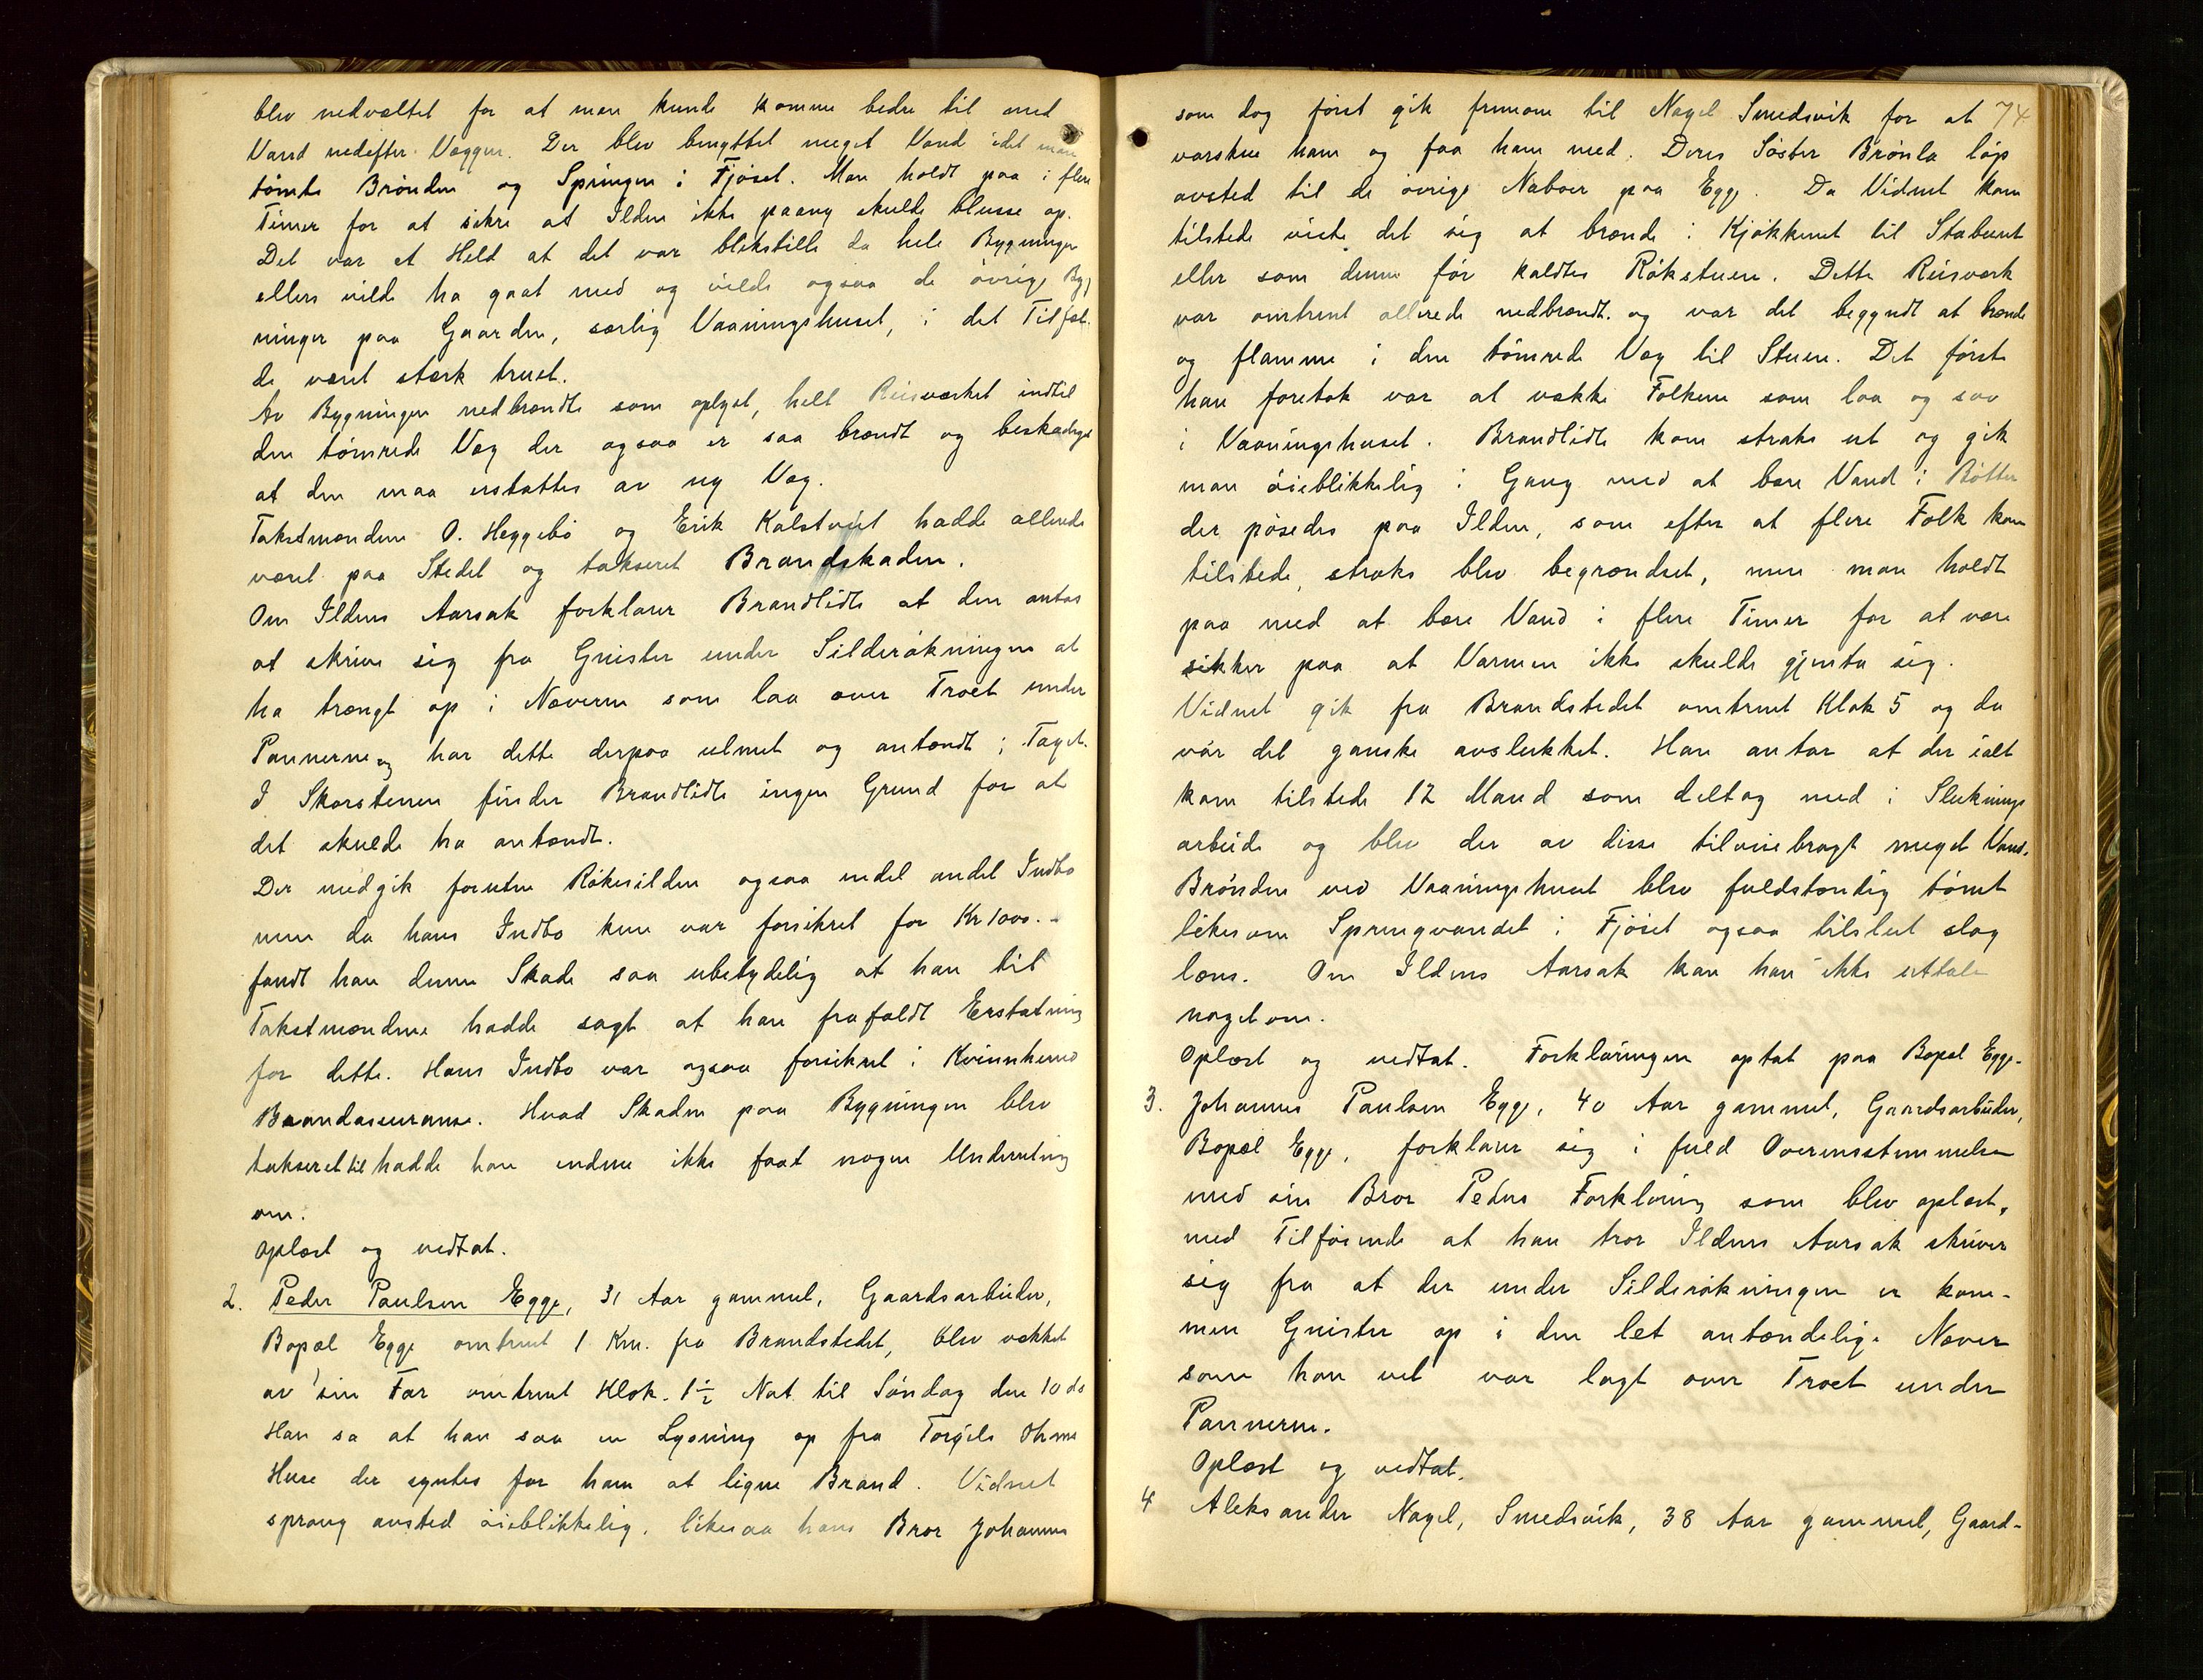 blev nedvæltet for at man kunde komme bedre til med
Vand nedefter Væggen. Der blev benyttet meget Vand idet man
tömte Brönden og Springen i Fjöset. Man holdt paa i flere
Timer for at sikre at Ilden ikke paany skulde blusse op.
Det var et Held at det var blikstille da hele Bygningen
ellers vilde ha gaat med og vilde ogsaa de övrige Byg
ninger paa Gaarden, særlig Vaaningshuset, i det Tilfæl
de været stærk truet.
Av Bygningen nedbrændte som oplyst, helt Reisværket indtil
den tömrede Væg der ogsaa er saa brændt og beskadiget
at den maa erstattes av ny Væg.
Takstmændene O. Heggebö og Erik Kalstveit hadde allerede
været paa Stedet og takseret Brandskaden.
Om Ildens Aarsak forklarer Brandlidte at den antas
at skrive sig fra Gnister under Silderökningen at
ha trængt op i Næveren som laa over Troet under
Pannerne og har dette derpaa ulmet og antændt i Taget.
I Skorstenen finder Brandlidte ingen Grund for at
det skulde ha antændt.
Der medgik foruten Rökesilden ogsaa endel andet Indbo
men da hans Indbo kun var forsikret for Kr 1000.-
fandt han denne Skade saa ubetydelig at han til
Takstmændene hadde sagt at han frafaldt Erstatning
for dette. Hans Indbo var ogsaa forsikret i Kvinnherred
Brandassurance. Hvad Skaden paa Bygningen blev
takseret til hadde han endnu ikke faat nogen Underretning
om.
Oplæst og vedtat.
2. Peder Paulsen Egge, 31 Aar gammel, Gaardsarbeider,
Bopæl Egge omtrent 1 Km. fra Brandstedet, blev vækket
av sin Far omtrent Klok. 1½ Nat til Söndag den 10 ds
Han sa at han saa en Lysning op fra Torgils Ohme
Huse der syntes for ham at ligne Brand. Vidnet
sprang avsted öieblikkelig, likesaa hans Bror Johannes
som dog först gik fremom til Nagel Smedsvik for at 74
varskue ham og faa ham med. Deres Söster Brönla löp
avsted til de övrige Naboer paa Egge. Da Vidnet kom
tilstede viste det sig at brænde i Kjökkenet til Staburet
eller som denne för kaldtes Rökstuen. Dette Reisværk
var omtrent allerede nedbrændt og var det begyndt at brænde
og flamme i den tömrede Væg til Stuen. Det förste
han foretok var at vække Folkene som laa og sov
i Vaaningshuset. Brandlidte kom straks ut og gik
man öieblikkelig i Gang med at bære Vand i Bötter
der pösedes paa Ilden, som efter at flere Folk kom
tilstede, straks blev begrændset, men man holdt
paa med at bære Vand i flere Timer for at være
sikker paa at Varmen ikke skulde gjenta sig.
Vidnet gik fra Brandstedet omtrent Klok 5 og da
var det ganske avslukket. Han antar at der ialt
kom tilstede 12 Mand som deltog med i Sluknings
arbeide og blev der av disse tilveiebragt meget Vand.
Brönden ved Vaaningshuset blev fuldstændig tömt
likesom Springvandet i Fjöset ogsaa tilslut slog
læns. Om Ildens Aarsak kan han ikke uttale
noget om.
Oplæst og vedtat. Forklaringen optat paa Bopæl Egge.
3. Johannes Paulsen Egge, 40 Aar gammel, Gaardsarbeider,
Bopæl Egge, forklarer sig i fuld Overensstemmelse
med sin Bror Peders Forklaring som blev oplæst,
med Tilföiende at han tror Ildens Aarsak skriver
sig fra at der under Silderökningen er kom-
men Gnister op i den let antændelige Næver
som han vet var lagt over Troet under
Pannerne.
Oplæst og vedtat.
4 Aleksander Nagel, Smedsvik, 38 Aar gammel, Gaard-